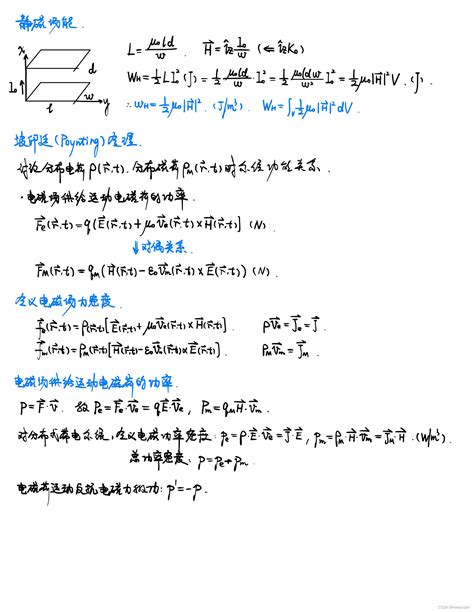 静磁场能.
x
I₀ d
l w y
L = μ₀ld/w . H⃗ = îz I₀/w (⇐ îz K₀)
W_H = ½LI₀² (J) = ½ μ₀ld/w · I₀² = ½ μ₀ldw/w² I₀² = ½μ₀|H⃗|²V . (J)
∴ w_H = ½μ₀|H⃗|² . (J/m³) W_H = ∫_V ½μ₀|H⃗|² dV .
坡印廷 (Poynting) 定理.
讨论分布电荷 ρ(r⃗,t). 分布磁荷 ρm(r⃗,t) 时系统功能关系.
· 电磁场供给运动电磁荷的功率.
F⃗e(r⃗,t) = q(E⃗(r⃗,t) + μ₀v⃗e(r⃗,t) × H⃗(r⃗,t)] (N)
↓对偶关系.
F⃗m(r⃗,t) = qm(H⃗(r⃗,t) − ε₀v⃗m(r⃗,t) × E⃗(r⃗,t)) (N).
定义电磁场力密度.
f⃗e(r⃗,t) = ρ(r⃗,t)[E⃗(r⃗,t) + μ₀v⃗e(r⃗,t) × H⃗(r⃗,t)] . ρv⃗e = J⃗e = J⃗ .
f⃗m(r⃗,t) = ρm(r⃗,t)[H⃗(r⃗,t) − ε₀v⃗m(r⃗,t) × E⃗(r⃗,t)] . ρmv⃗m = J⃗m .
电磁场供给运动电磁荷的功率.
P = F⃗·v⃗ . 故 Pe = F⃗e·v⃗e = qE⃗·v⃗e , Pm = qmH⃗·v⃗m .
对分布式带电系统, 定义电磁功率密度: pe = ρ·E⃗·v⃗e = J⃗·E⃗ , pm = ρm·H⃗·v⃗m = J⃗m·H⃗ . (W/m³)
总功率密度: p = pe + pm .
电磁荷运动反抗电磁力做功: p' = −p .